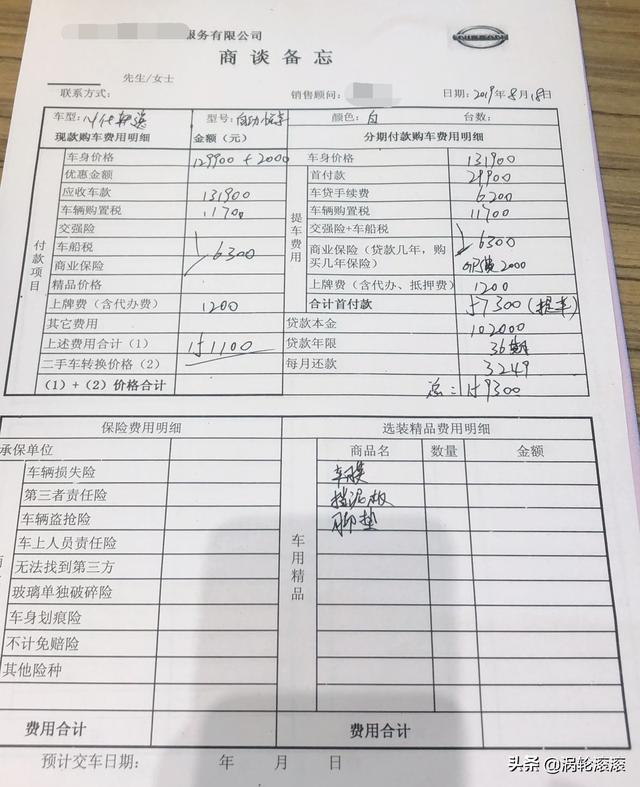 服务有限公司
商谈备忘
先生/女士
联系方式: 销售顾问: 日期: 2019年8月18日
车型: 型号: 自动 颜色: 白 台数:
现款购车费用明细 金额(元) 分期付款购车费用明细
付款项目
车身价格 129900 + 2000
优惠金额
应收车款 131900
车辆购置税 11700
交强险
车船税 6300
商业保险
精品价格
上牌费(含代办费) 1200
其它费用
上述费用合计(1) 151100
二手车转换价格(2)
(1)+(2)价格合计
提车费用
车身价格 131900
首付款 29900
车贷手续费 6200
车辆购置税 11700
交强险+车船税 6300
商业保险(贷款几年,购买几年保险) 2000
上牌费(含代办、抵押费) 1200
合计首付款 57300(提车)
贷款本金 102000
贷款年限 36期
每月还款 3249
总: 159300
保险费用明细 选装精品费用明细
承保单位 商品名 数量 金额
车辆损失险 车膜
第三者责任险 挡泥板
车辆盗抢险 脚垫
车上人员责任险
无法找到第三方
玻璃单独破碎险
车身划痕险
不计免赔险
其他险种
车用精品
费用合计 费用合计
预计交车日期: 年 月 日
头条 @涡轮滚滚